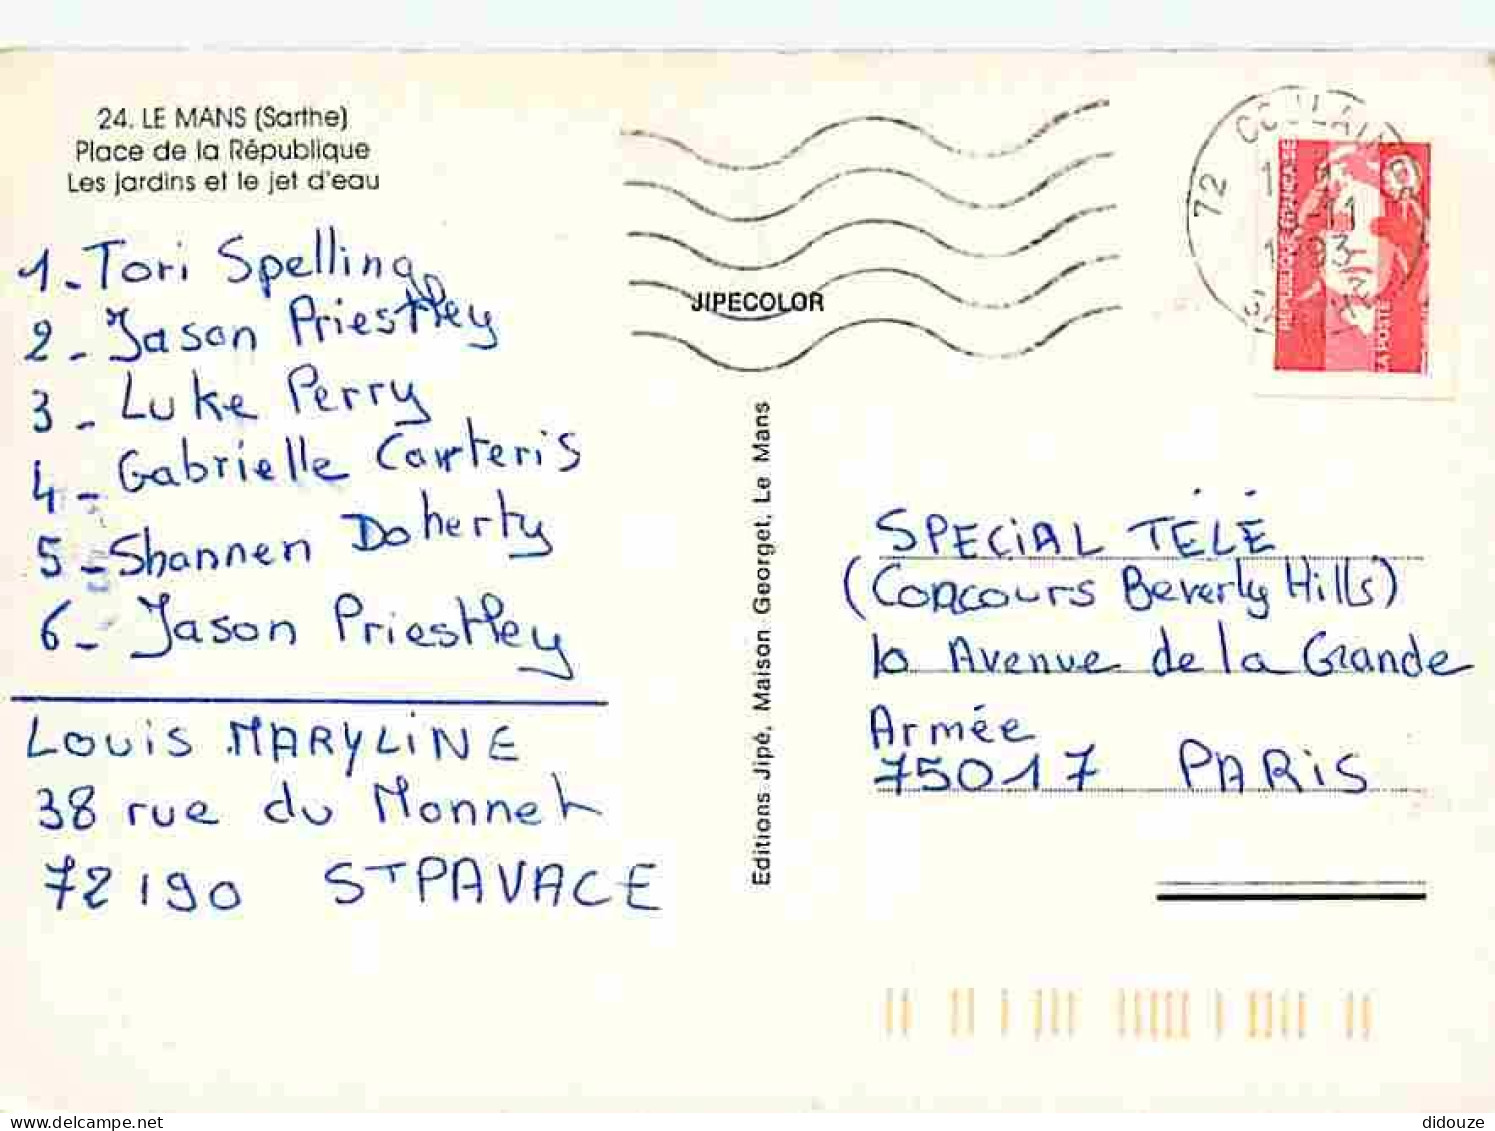 24. LE MANS (Sarthe)
Place de la République
Les jardins et le jet d'eau
1 - Tori Spelling
2 - Jason Priestley
3 - Luke Perry
4 - Gabrielle Carteris
5 - Shannen Doherty
6 - Jason Priestley
LOUIS MARYLINE
38 rue du Monnet
72190 ST PAVACE
JIPECOLOR
Editions Jipé, Maison Georget, Le Mans
72 COULAINES
11
RÉPUBLIQUE FRANÇAISE
LA POSTE
SPECIAL TÉLÉ
(Concours Beverly Hills)
10 Avenue de la Grande
Armée
75017 PARIS
didouze